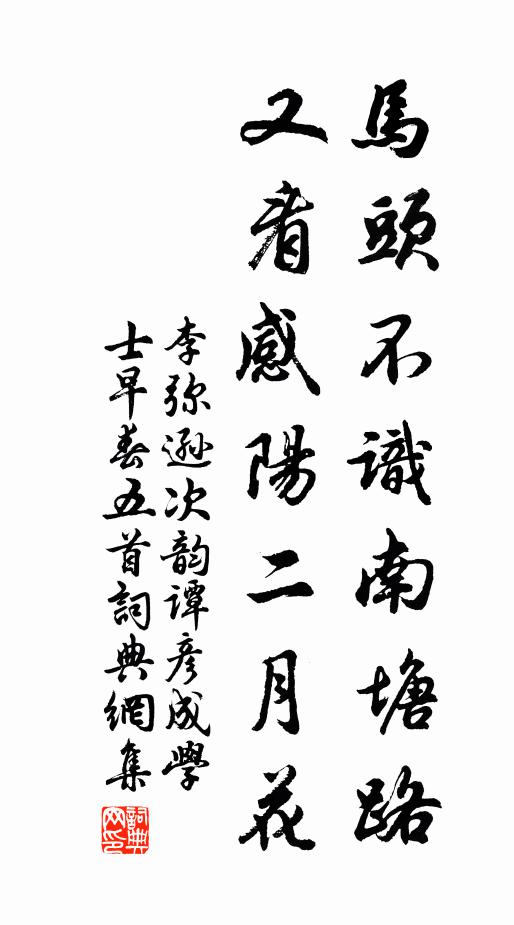 馬頭不識南塘路
又看感陽二月花
李弥遜次韵谭彦成學
士早春五首詞典網集
詞典
网印